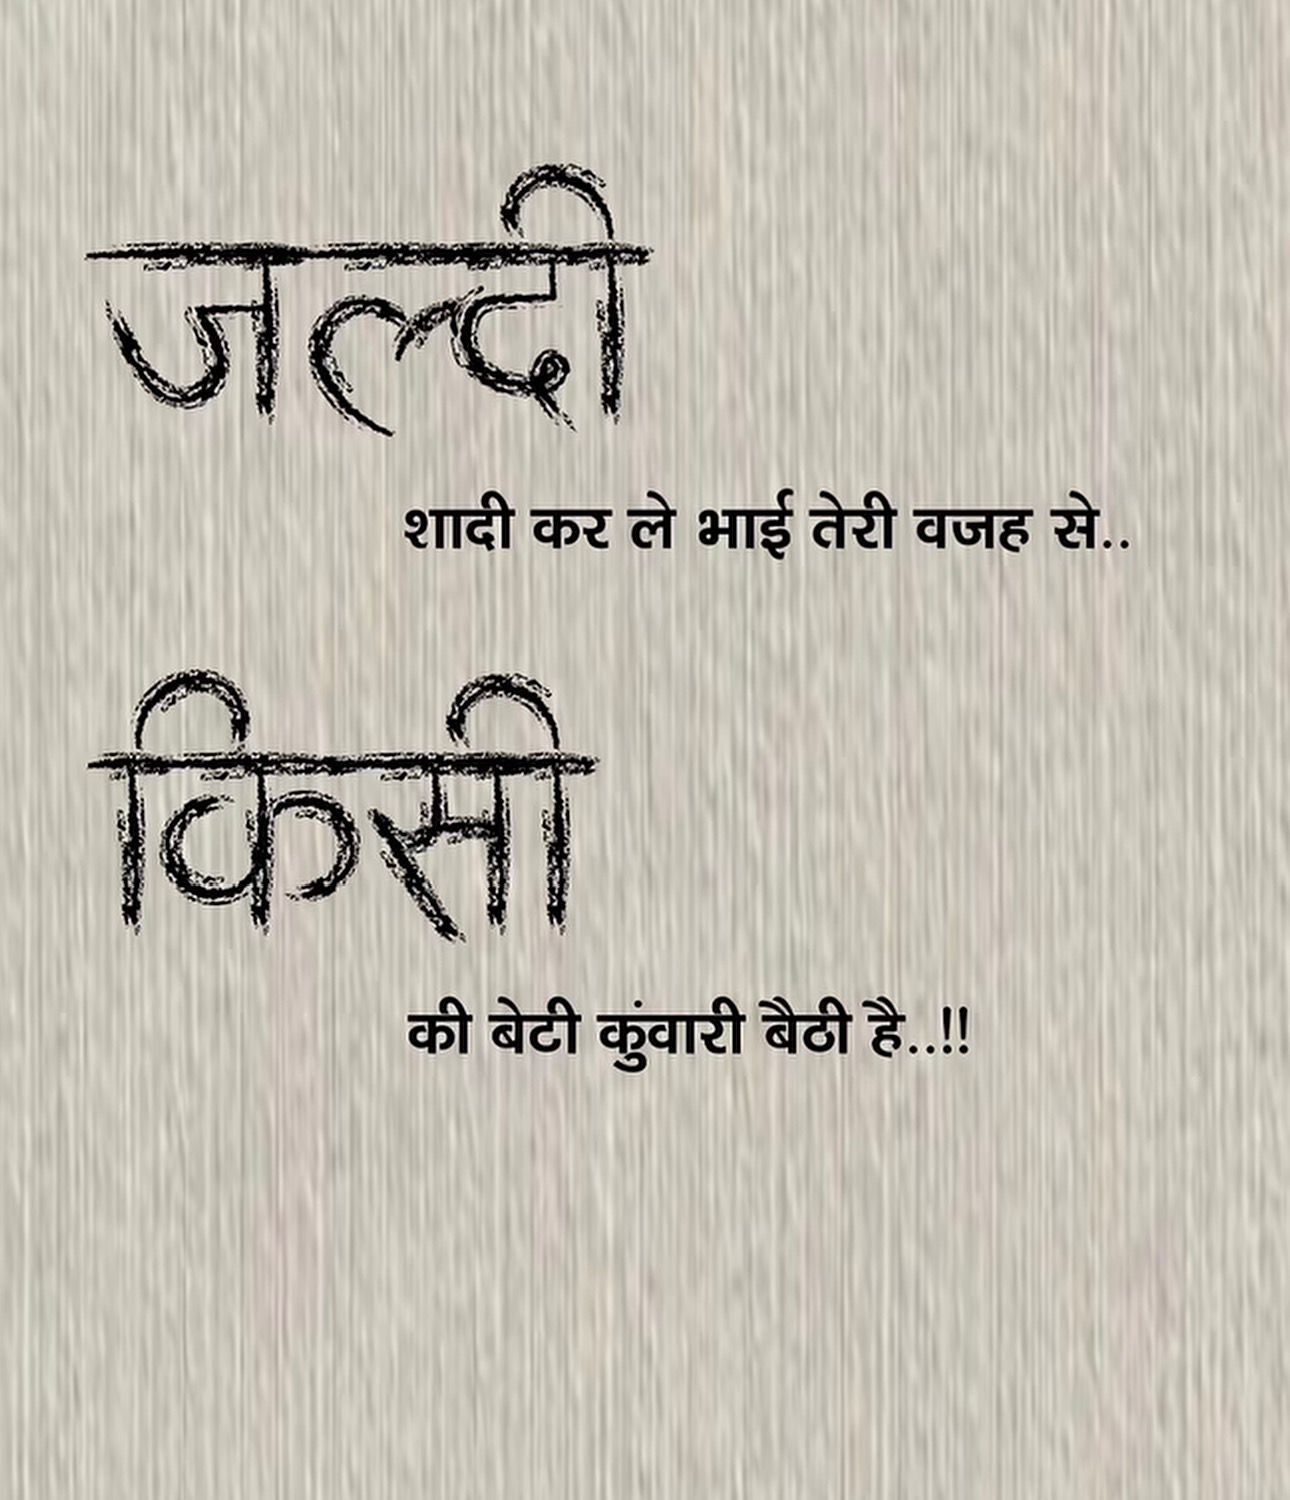 जल्दी
शादी कर ले भाई तेरी वजह से..
किसी
की बेटी कुंवारी बैठी है..!!